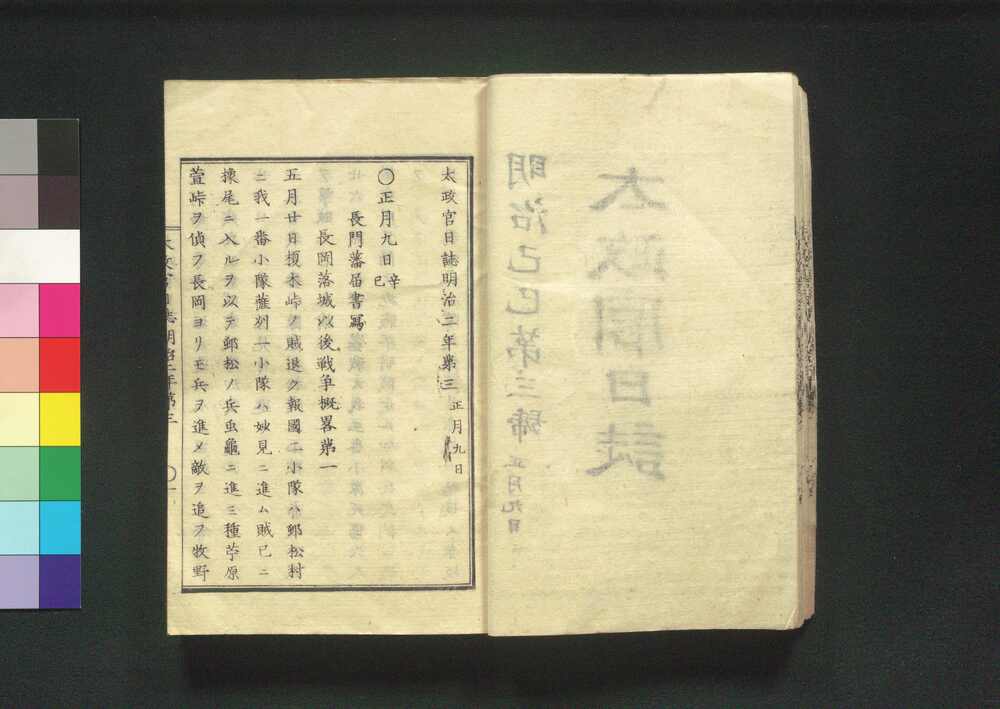 太政官日誌
明治己巳第三號 正月九日
太政官日誌明治二年第三 正月九日
〇正月九日 辛巳
長門藩届書寫
長岡落城以後戦争概畧第一
五月廿日榎木峠ノ賊退ク報國二小隊ハ郷松村
ニ我一番小隊薩州一小隊ハ妙見ニ進ム賊已ニ
椽尾ニ入ルヲ以テ郷松ノ兵虫龜ニ進ミ種苧原
萱峠ヲ偵フ長岡ヨリモ兵ヲ進メ敵ヲ追フ牧野
太政官日誌明治二年第三 〇一